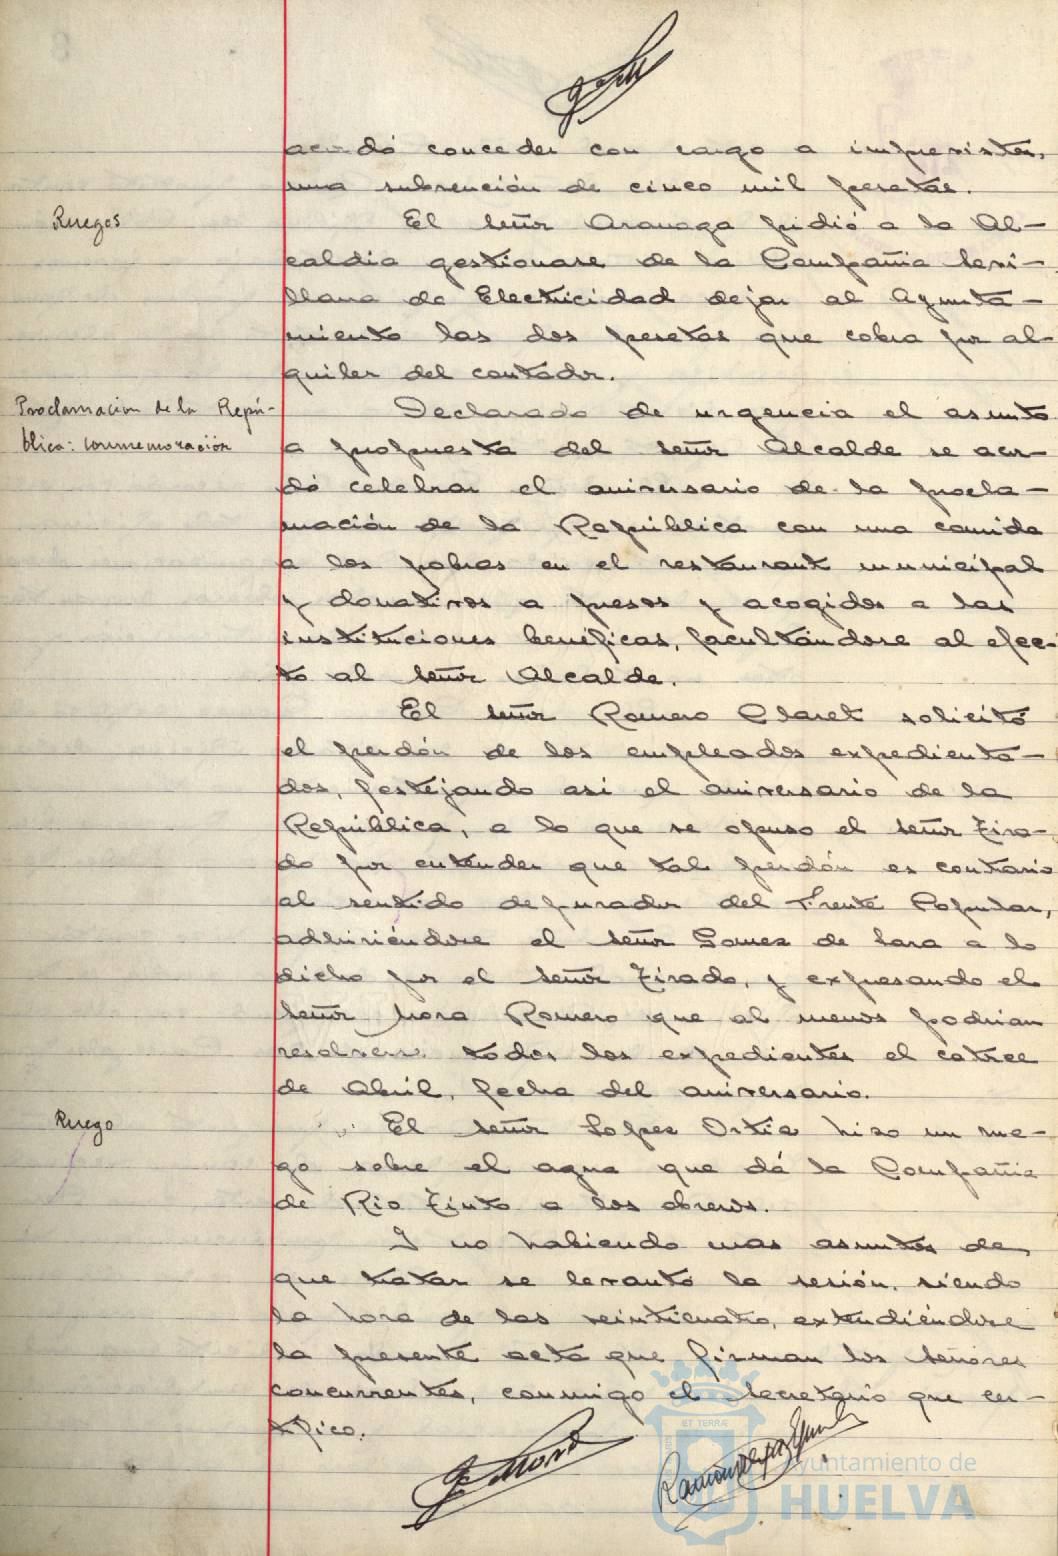 acordó conceder con cargo a imprevistos,
una subvención de cinco mil pesetas.
Ruegos
El señor Aranaga pidió a la Al-
caldia gestionase de la Compañia Sevi-
llana de Electricidad dejar al Ayunta-
miento las dos pesetas que cobra por al-
quiler del contador.
Proclamacion de la Repú-
blica: conmemoración
Declarado de urgencia el asunto
a propuesta del señor Alcalde se acor-
dó celebrar el aniversario de la procla-
mación de la República con una comida
a los pobres en el restaurant municipal
y donativos a presos y acogidos a las
instituciones beneficas, facultándose al efec-
to al señor Alcalde.
El señor Romero Claret solicitó
el perdón de los empleados expedienta-
dos, festejando asi el aniversario de la
República, a lo que se opuso el señor Tira-
do por entender que tal perdón es contrario
al sentido depurador del Frente Popular,
adhiriéndose el señor Gomez de Lara a lo
dicho por el señor Tirado, y expresando el
señor Mora Romero que al menos podrian
resolverse todos los expedientes el catorce
de Abril, fecha del aniversario.
Ruego
El señor Lopez Ortiz hizo un rue-
go sobre el agua que dá la Compañia
de Rio Tinto a los obreros.
Y no habiendo mas asuntos de
que tratar se levantó la sesión, siendo
la hora de las veinticuatro, extendiéndose
la presente acta que firman los señores
concurrentes, conmigo el Secretario que cer-
tifico.
ET TERRÆ
Ayuntamiento de
HUELVA